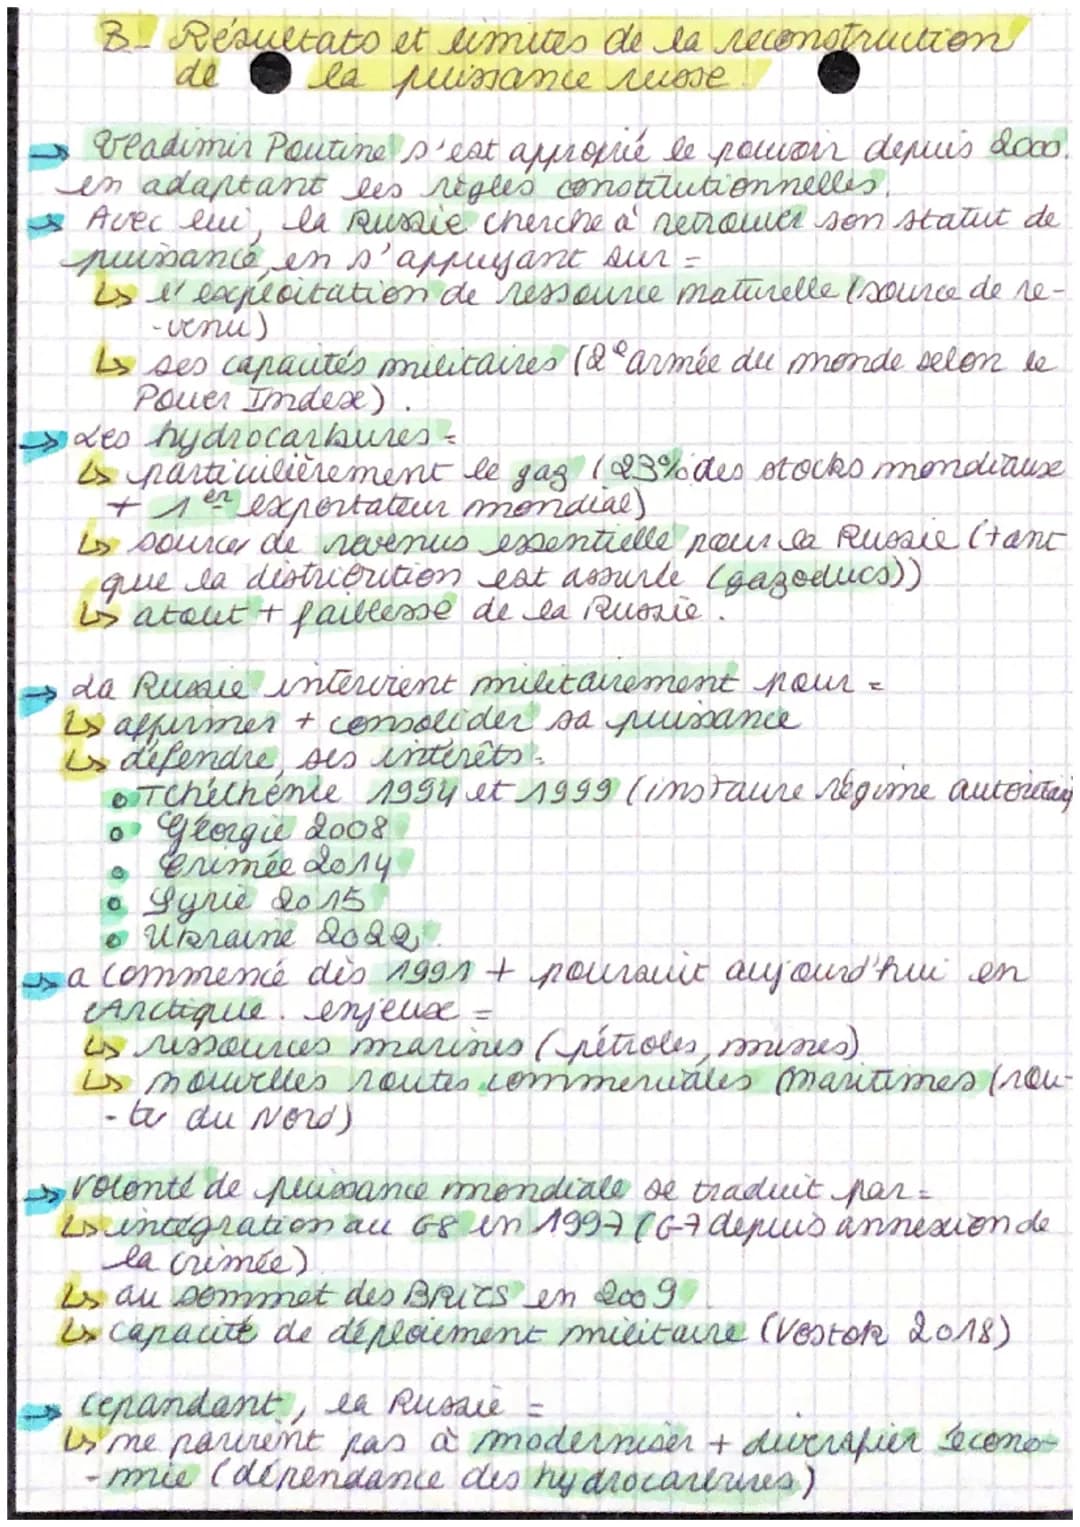 B- Résultats et limites de la reconstruction
de la puissance russe.
→ Vladimir Poutine s'est approprié le pouvoir depuis 2000.
en adaptant les règles constitutionnelles.
→ Avec lui, la Russie cherche à retrouver son statut de
puissance, en s'appuyant sur =
↳ l'exploitation de ressource naturelle (source de re-
-venu)
↳ ses capacités militaires (2e armée du monde selon le
Power Index).
→ Les hydrocarbures =
↳ particulièrement le gaz (23% des stocks mondiaux
+ 1er exportateur mondial)
↳ source de revenus essentielle pour la Russie (tant
que la distribution est assurée (gazoducs))
↳ atout + faiblesse de la Russie.
→ La Russie intervient militairement pour =
↳ affirmer + consolider sa puissance
↳ défendre, ses interêts =
o Tchétchénie 1994 et 1999 (instaure régime autoritair
o Géorgie 2008
o Crimée 2014
o Syrie 2015
o Ukraine 2022.
→ a commencé dès 1991 + poursuit aujourd'hui en
Arctique. enjeux =
↳ ressources marines (pétroles, mines)
↳ nouvelles routes commerciales maritimes (rou-
-te du Nord)
→ volonté de puissance mondiale se traduit par =
↳ intégration au G8 en 1997 (G7 depuis annexion de
la crimée)
↳ au sommet des BRICS en 2009
↳ capacité de déploiement militaire (Vostok 2018)
→ cependant, la Russie =
↳ ne parvient pas à moderniser + diversifier écono-
-mie (dépendance des hydrocarbures)